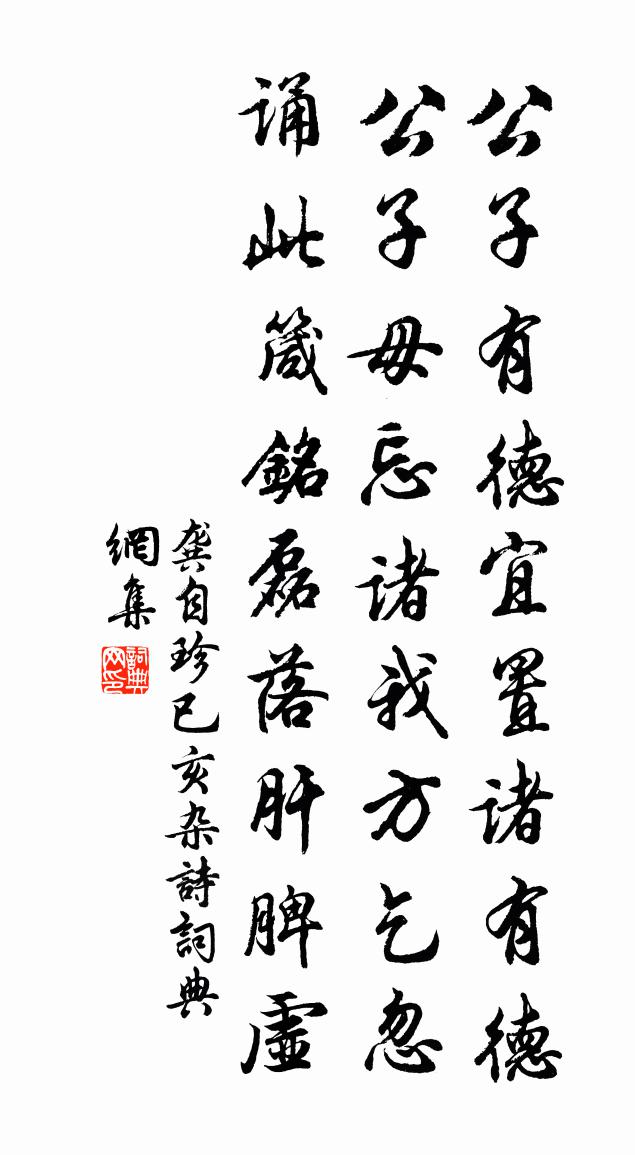 公子有德宜置诸有德
公子毋忘诸我方乞忽
诵此箴銘磊落肝脾虛
龚自珍己亥杂詩詞典
網集
詞典
网印